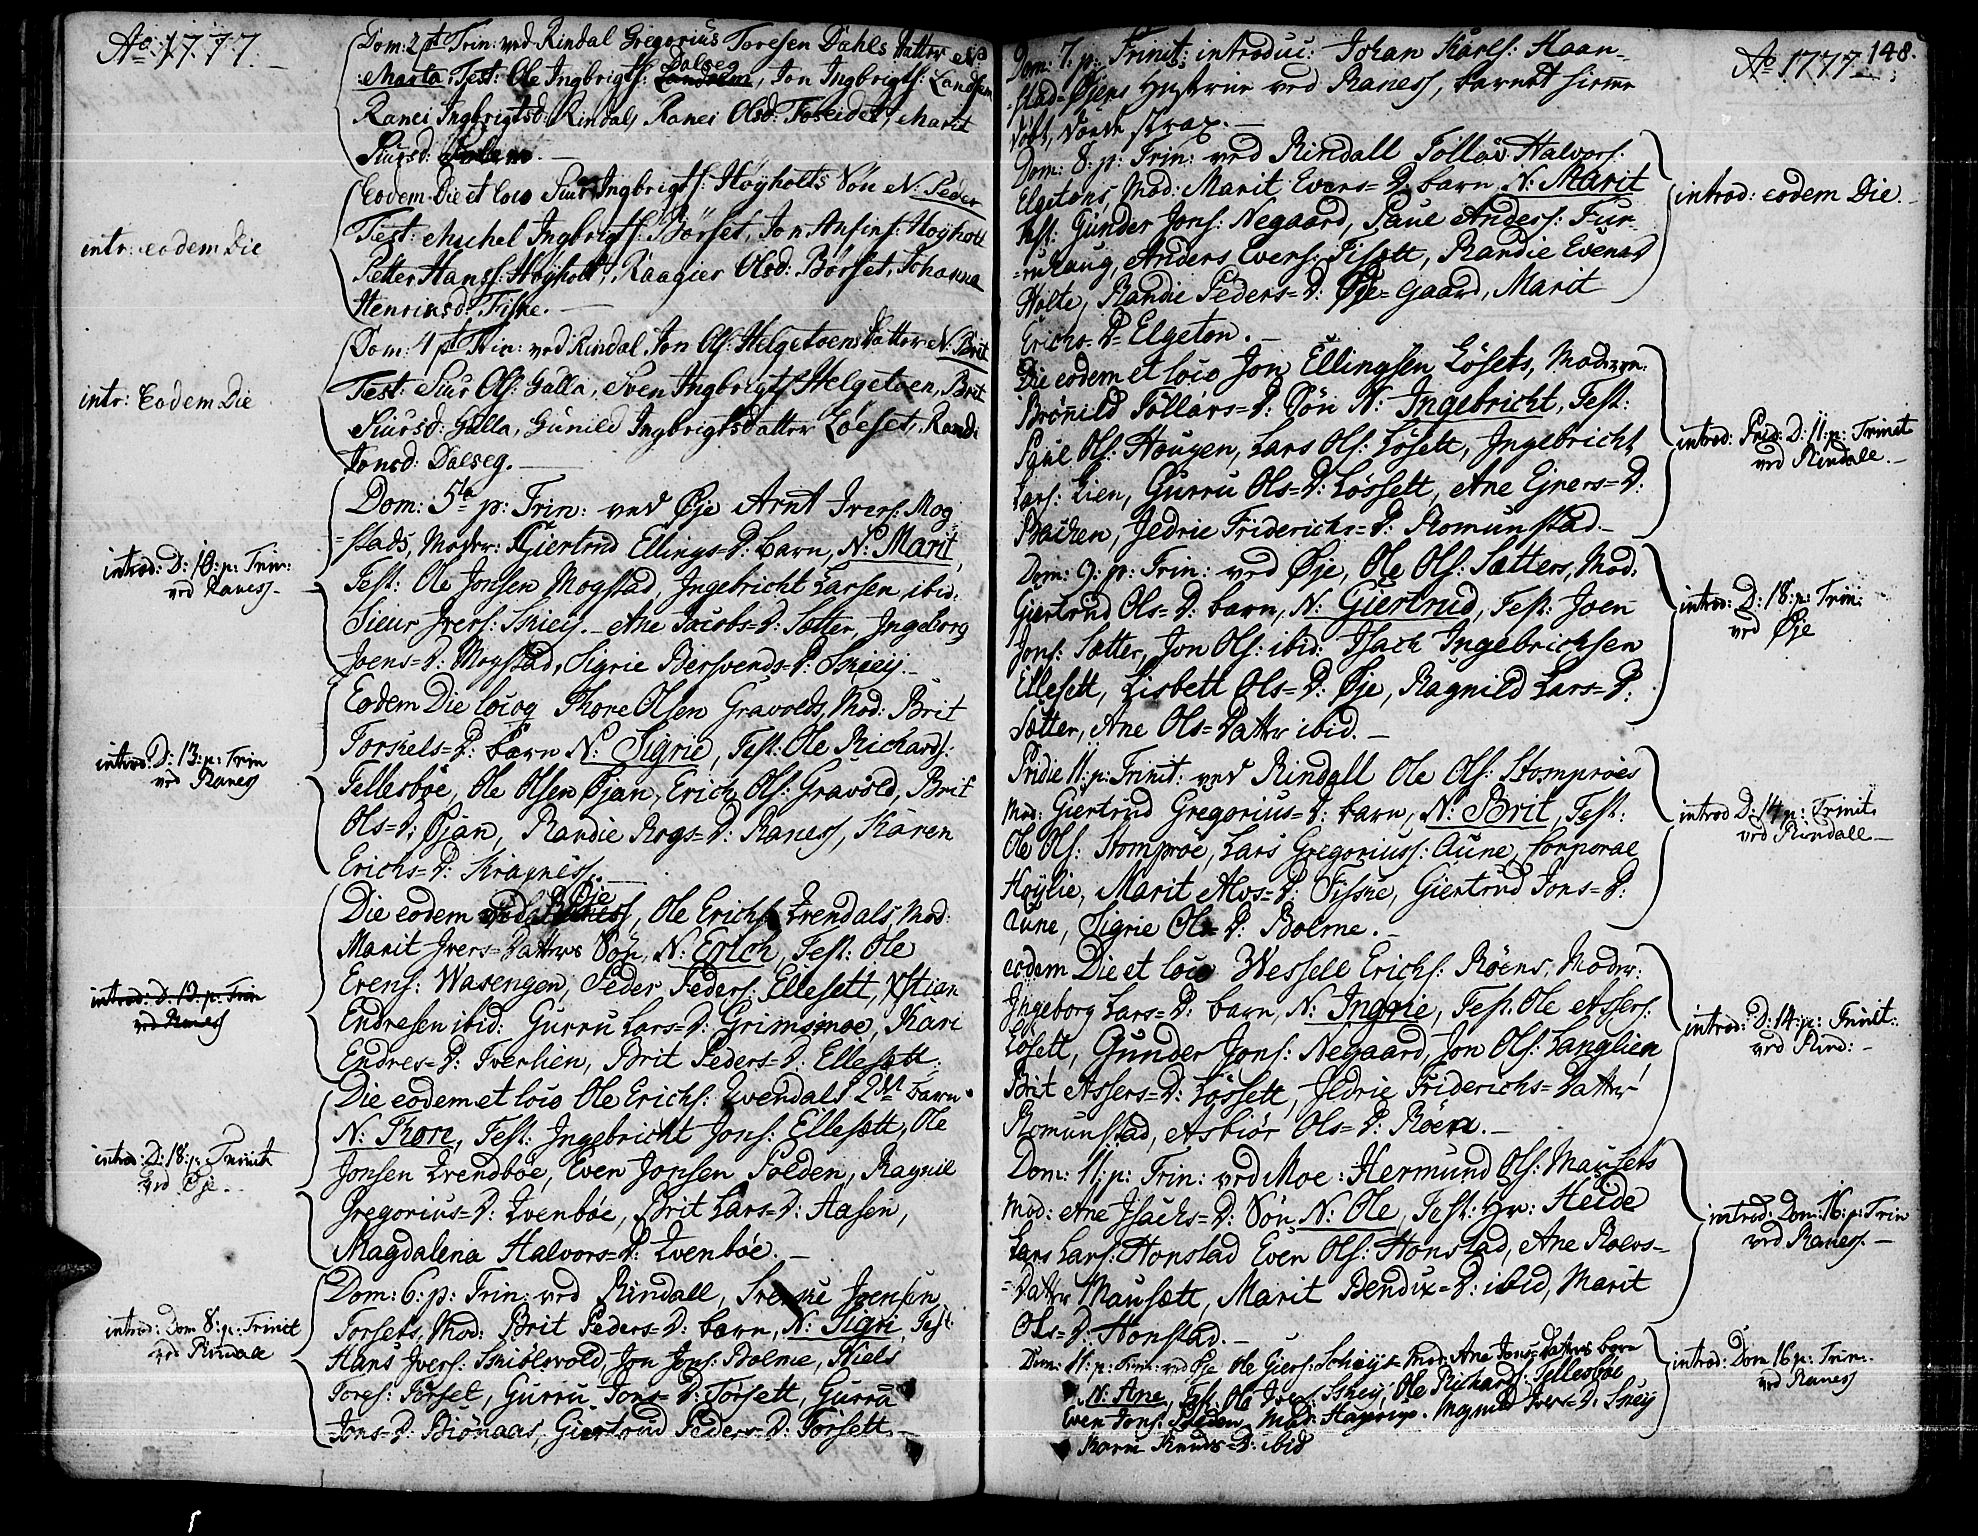 Ao 1777.
Dom: 2 pt Trin: ved Rindal Gregorius Toresen Dahls datter N
Marta Test: Ole Ingbrigts: Dalseg, Jon Ingbrigts: Landsem
Ranei Ingbrigtsd: Rindal, Ranei Olsd: Foseidet, Marit
Siursd:
intr: eodem Die
Eodem Die et loco Siur Ingbrigts: Höyholts Sön N: Peder
Test: Michel Ingbrigts: Börset, Jon Ansins: Höyholt
Petter Hanss: Höyholt, Raagier Olsd: Börset, Johanna
Henriksd: Fiske.
intr: Eodem Die
Dom: 4 pt Trin: ved Rindal Jon Ols: Helgetoens datter N: Brit
Test: Siur Ols: Galla, Sven Ingbrigts: Helgetoen, Brit
Siursd: Galla, Gunild Ingbrigtsdatter Löeset, Randi
Jonsd: Dalseg.
introd: D: 10: p: Trin:
ved Raness
Dom: 5ta p: Trin: ved Øje Arnt Ivers: Mog
=stads, Moder: Giertrud Ellings=D: barn, N: Marit,
Test: Ole Jonsen Mogstad, Ingebricht Larsen ibid,
Sieur Ivers: Skiej. Ane Jacobs=D: Sætter, Ingeborg
Joens=D: Mogstad, Sigrie Bersvends=D: Skiej.
introd: D: 13: p: Trin
ved Raness
Eodem Die locoq Thore Olsen Gravolds, Mod: Brit
Torskels=D: barn N: Sigrie, Test: Ole Richards:
Tellesböe, Ole Olsen Øjan, Erich Ols: Gravold, Brit
Ols=D: Øjan, Randie Rogs=D: Raness, Karen
Erichs=D: Kragness.
introd: D: 19: p: Trin
ved Raness
Die eodem ved Øje, Ole Erichs: Qvendals, Mod:
Marit Ivers=Datters Sön, N: Erich, Test: Ole
Erens: Wasengen, Peder Peders: Ellesett, Xstian
Endresen ibid: Gurru Lars=D: Grimsmoe, Kari
Endres=D: Tverlien, Brit Peders=D: Ellesett.
introd: D: 18: p: Trinit
ved Øje.
Die eodem et loco Ole Erichs: Qvendals 2det barn
N: Thore, Test: Ingebricht Jons: Ellesett, Ole
Jonsen Qvendböe, Even Jonsen Polden, Ragnil
Gregorius=D: Qvenböe, Brit Lars=D: Aasen,
Magdalena Halvors=D: Qvenböe.
introd: Dom 8: p: Trinit
ved Rindall
Dom: 6: p: Trin: ved Rindall, Joensen
Torsets, Mod: Brit Peders=D: barn, N: Sigri, Test:
Hans Ivers: Skiölsvold, Jon Jons: Bolme, Niels
Tores: Torset, Gurru Jons=D: Torsett, Gurru
Jons=D: Biönaas, Giertrud Peders=D: Torsett.
Ao 1777. 148.
Dom: 7. p: Trinit: introduc: Johan Karls: Haan-
stad=Øjens Hustrue ved Raness, barnet hiemme
döbt, döede strax.
Dom: 8: p: Trin: ved Rindall Tollov Halvors:
Elgetons, Mod: Marit Evers=D: barn, N: Marit
Test: Gunder Jons: Negaard, Paul Anders: Fur-
=ruhaug, Anders Evers: Fisett, Randie Evens D
Holte, Randie Peders=D: Øje=gaard, Marit
Erichs=D: Elgeton.
introd: eodem Die.
Die eodem et loco Jon Ellingsen Lösets, Moderen:
Brönild Tollars=D: Sön N: Ingebricht, Test:
Paul Ols: Hougen, Lars Ols: Lösett, Ingebricht
Lars: Lien, Gurru Ols=D: Lössett, Ane Ejners=D:
Backen, Jedrie Friderichs=D: Romunstad.
introd: Prid: D: 11: p: Trinit
ved Rindall.
Dom: 9: p: Trin: ved Øje, Ole Ols: Sætters, Mod:
Giertrud Ols=D: barn, N: Giertrud, Test: Joen
Jons: Sætter, Jon Ols: ibid: Isach Ingebrichsen
Ellesett, Lisbett Ols=D: Øje, Ragnild Lars=D:
Sætter, Ane Ols=Datter ibid.
introd: D: 18: p: Trin:
ved Øje
Pridie 11: p: Trinit: ved Rindall Ole Ols: Stompröes
Mod: Giertrud Gregorius=D: barn, N: Brit, Test:
Ole Ols: Stompröe, Lars Gregoriuss: Aune, Corporal
Höylie, Marit Alvs=D: Fiske, Giertrud Jons=D:
Aune, Sigrie Ols=D: Bolme.
introd D: 14 p: Trinit.
ved Rindall
eodem Die et loco Wessell Erichs: Röens, Moder:
Ingeborg Lars=D: barn, N: Ingrie, Test. Ole Assers:
Lösett, Gunder Jons: Negaard, Jon Ols: Langlien,
Brit Assers=D: Lössett, Jedrie Friderichs=Datter
Romunstad, Asbiör Ols=D: Röen.
introd: D: 14: p: Trinit:
ved Rind:
Dom: 11: p: Trin: ved Moe: Hermund Ols: Mausets
Mod: Ane Isachs=D: Sön N: Ole, Test: Hr: Heide
Lars Lars: Honstad Even Ols: Honstad, Ane Roevs-
=Datter Mausett, Marit Bendix=D: ibid, Marit
Ols=D: Honstad.
introd: Dom: 16: p: Trin
ved Raness.
Dom: 11: p: Trin: ved Øje Ole Giers: Schejs Mod: Ane Jons=Datters barn
N: Ane, Test: Ole Ivers: Skiej, Ole Richards: Tellesböe
Even Jons: Polden, Ingrid Ivers=D: Skiej
Karen Knuds=D: ibid
introd: Dom 16: p: Trin:
ved Raness